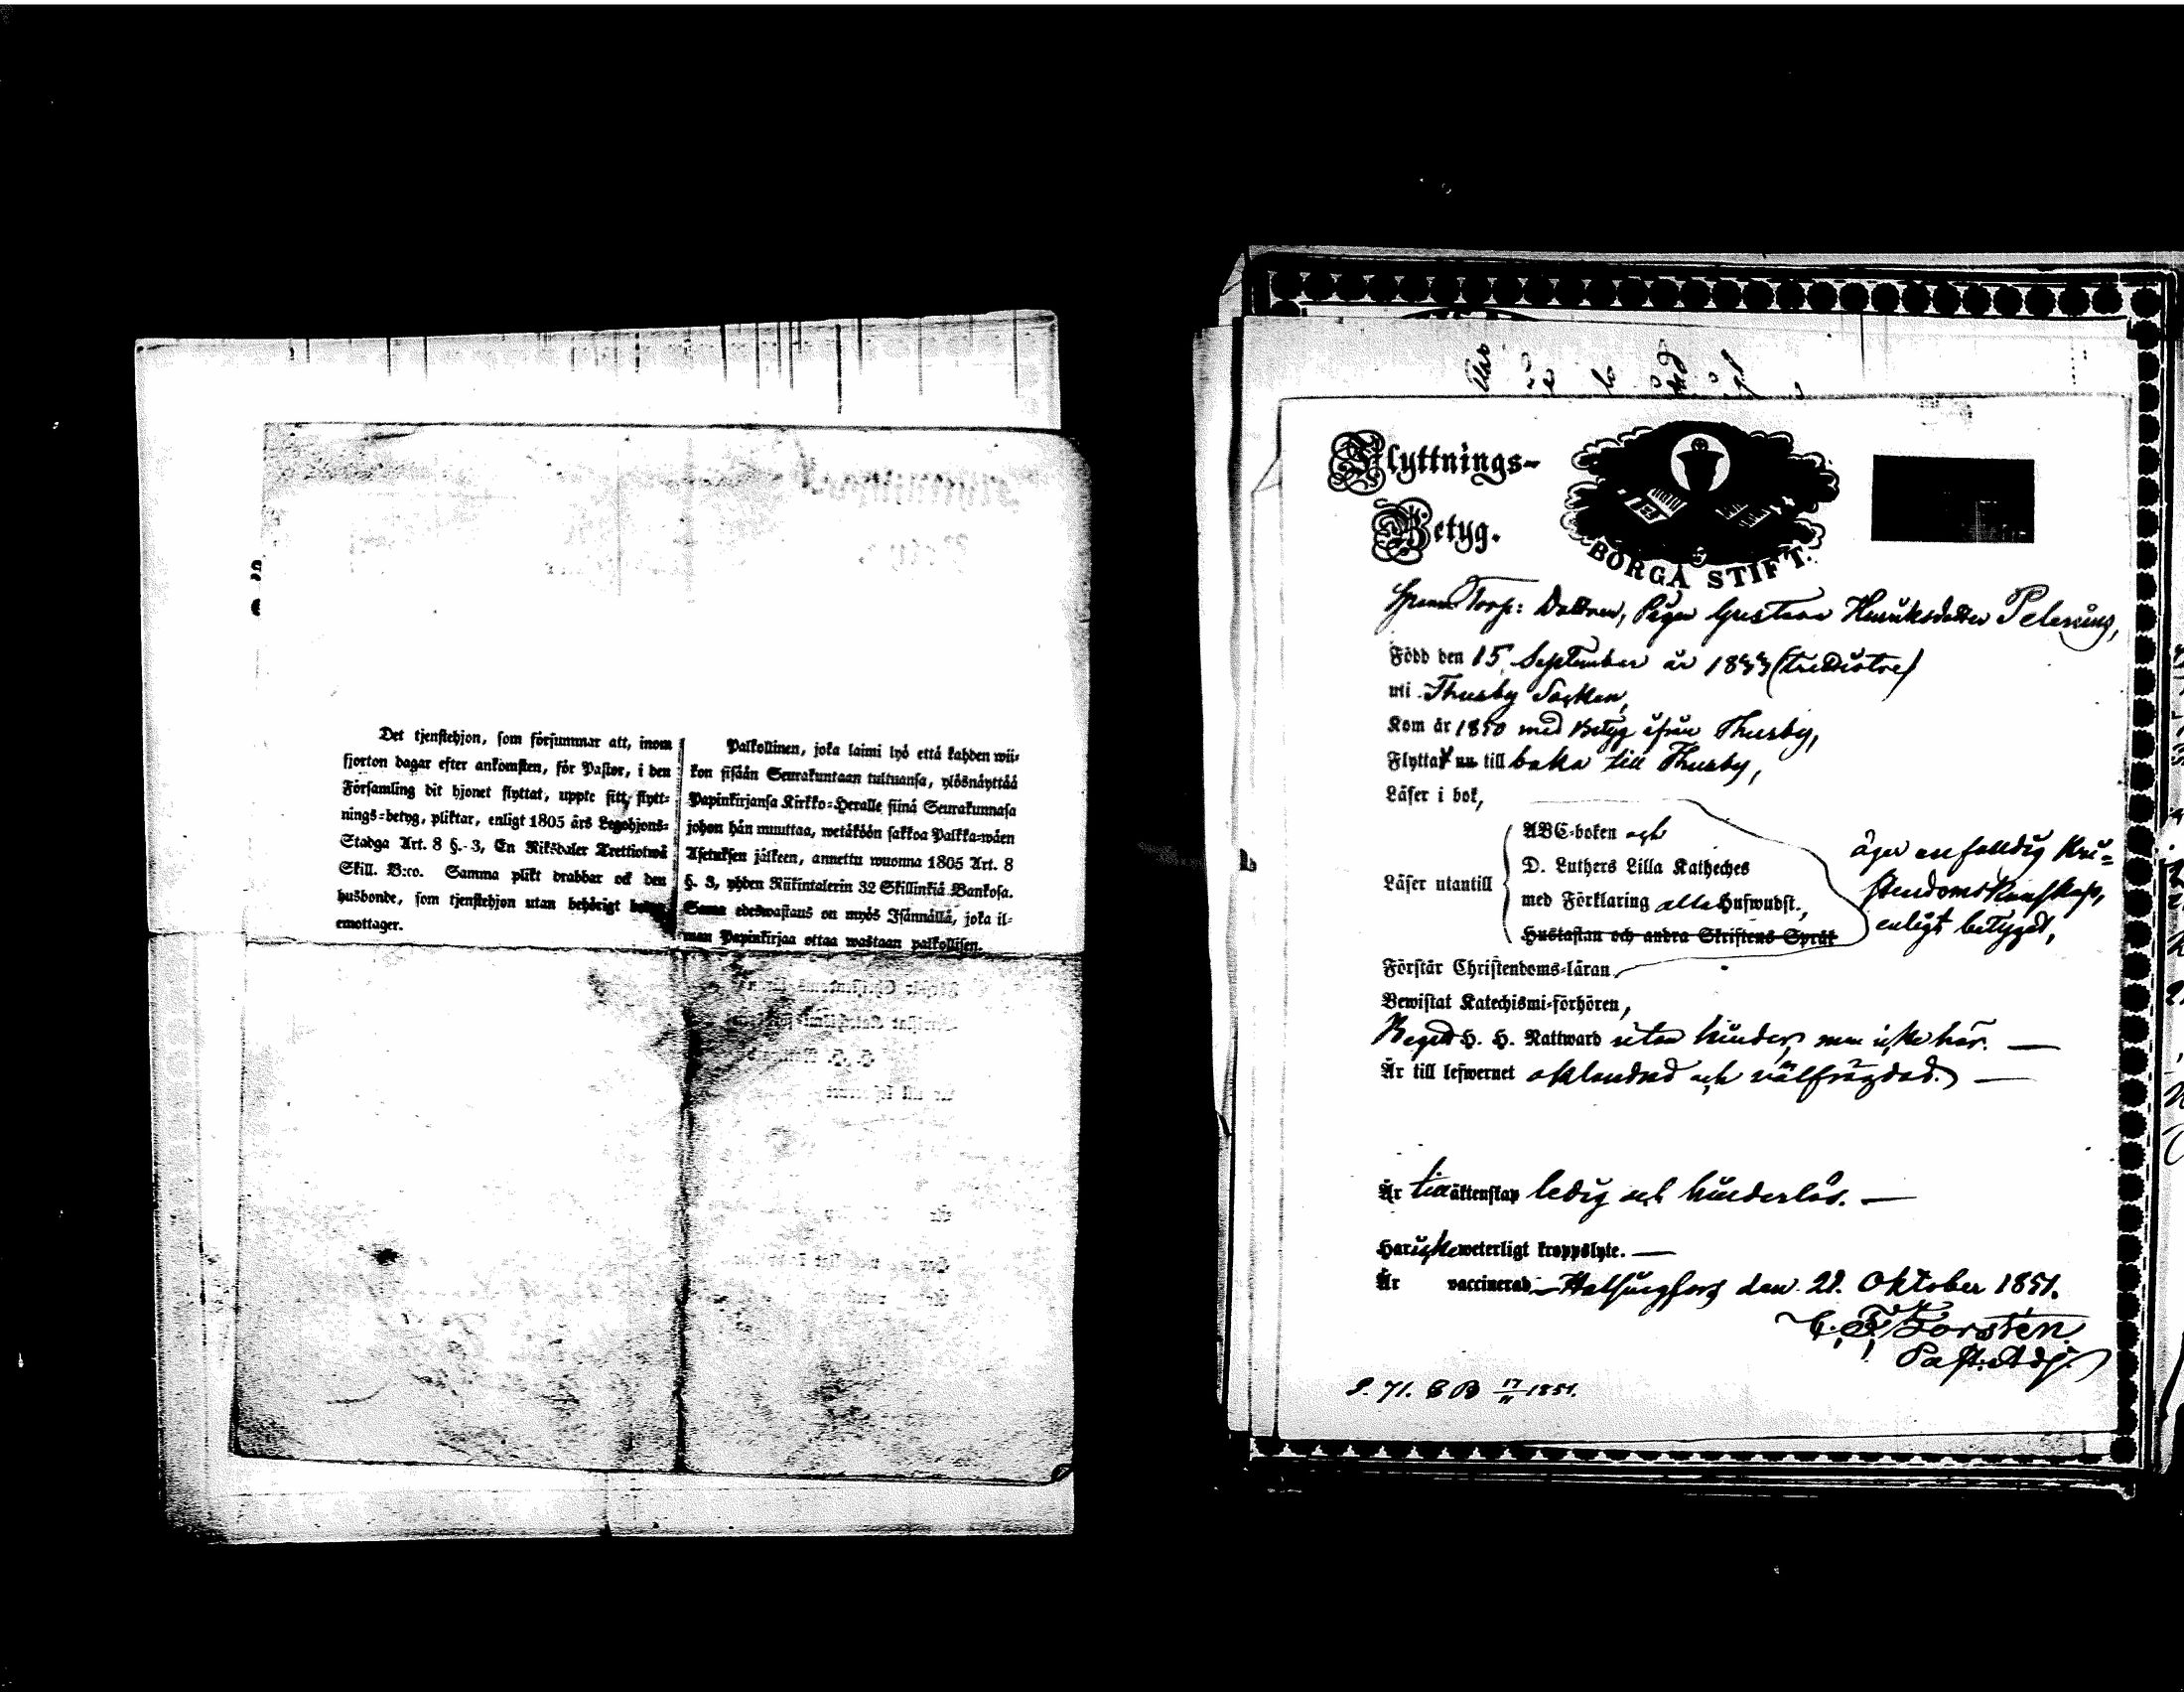 Det tjenstehjon, som försummar att, inom
fjorton dagar efter ankomsten, för Pastor, i den
Församling dit hjonet flyttat, uppte sitt flytt-
nings-betyg, pliktar, enligt 1805 års Legohjons-
Stadga Art. 8 §. 3, En Riksdaler Trettiotwå
Skill. B:co. Samma plikt drabbar ock den
husbonde, som tjenstehjon utan behörigt
emottager.
Palkollinen, joka laimi lyö että kahden wii-
kon sisään Seurakuntaan tultuansa, ylösnäyttää
Papinkirjansa Kirkko-Heralle siinä Seurakunnasa
johon hän muuttaa, wetäköön sakkoa Palkka-wäen
Asetuksen jälkeen, annettu wuonna 1805 Art. 8
§. 3, yhden Riikintalerin 32 Skillinkiä Bankosa.
Sama edeswastaus on myös Isännällä, joka il-
man Papinkirjaa ottaa wastaan palkollisen.
Flyttnings-
Betyg.
BORGÅ STIFT.
Torp: Dottren, Pigan Gustava Henriksdotter
Född den 15 September år 1833 (trettiotre)
uti Thusby Socken,
Kom år 1850 med Betyg ifrån Thusby,
Flyttar nu till baka till Thusby,
Läser i bok,
Läser utantill
ABC-boken och
D. Luthers Lilla Katheches
med Förklaring alla Hufwudst.,
Hustaflan och andra Skriftens Språk
äger enfalldig Kri-
stendomskunskap,
enligt betyget,
Förstår Christendoms-läran
Bewistat Katechismi-förhören,
Begått H. H. Nattward utan hinder, men icke här. —
Är till lefwernet oklandrad och välfrägdad. —
Är till äktenskap ledig och hinderlös. —
Har icke weterligt kroppslyte. —
Är vaccinerad — Helsingfors den 21. Oktober 1851.
Forstén
Past. Adj.
S. 71. 17/11 1851.